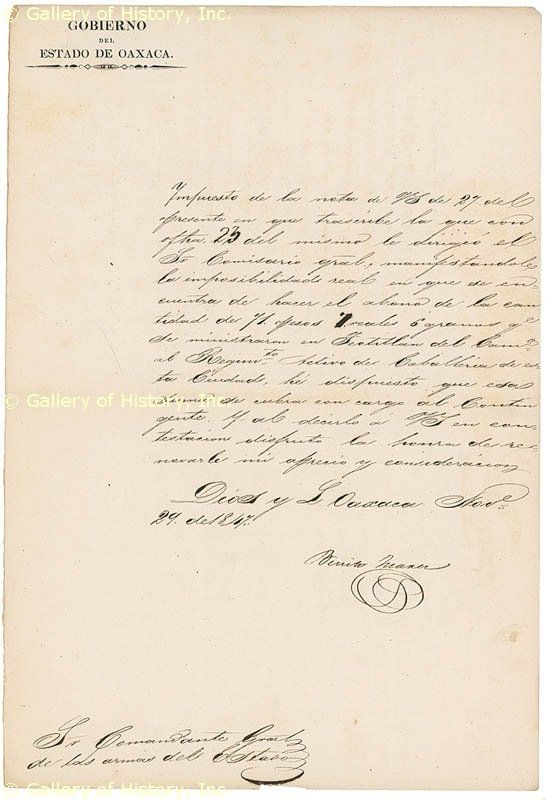 © Gallery of History, Inc.
GOBIERNO
DEL
ESTADO DE OAXACA.
Impuesto de la nota de VS de 27 del
presente en que trascribe la que con
fha. 23 del mismo le dirigió el
Sr Comisario gral, manifestandole
la imposibilidad real en que se en-
cuentra de hacer el abono de la can-
tidad de 71 pesos 7 reales 6 granos qe
se ministraron en Teotitlan del Camo
al Regimto Activo de Caballeria de es-
ta Ciudad, hé dispuesto que esa
© Gallery of History, Inc.
suma se cubra con cargo al Contin-
gente. Y al decirlo á VS en con-
testacion disfruto la honra de re-
novarle mi aprecio y consideracion
Dios y L. Oaxaca Nove
29. de 1847.
Benito Juarez
Sr Comandante Gral
de las armas del Estado
© Gallery of History, Inc.